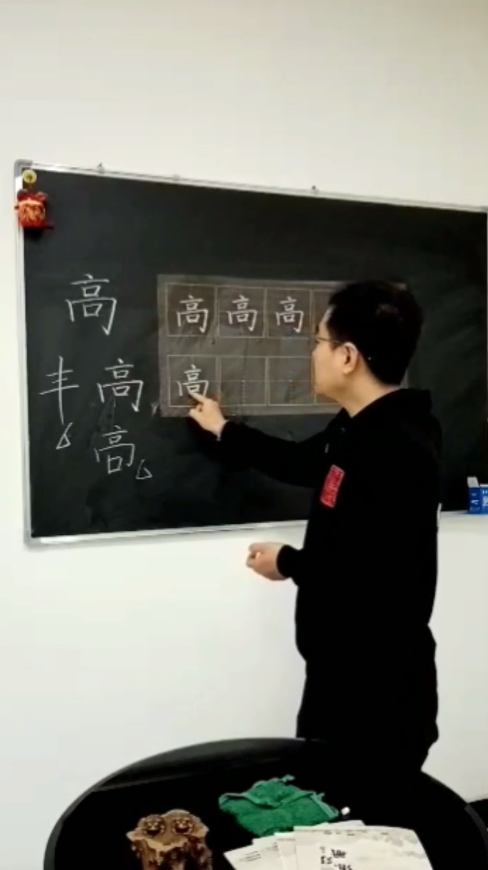 高
高高高
丰高
高
高